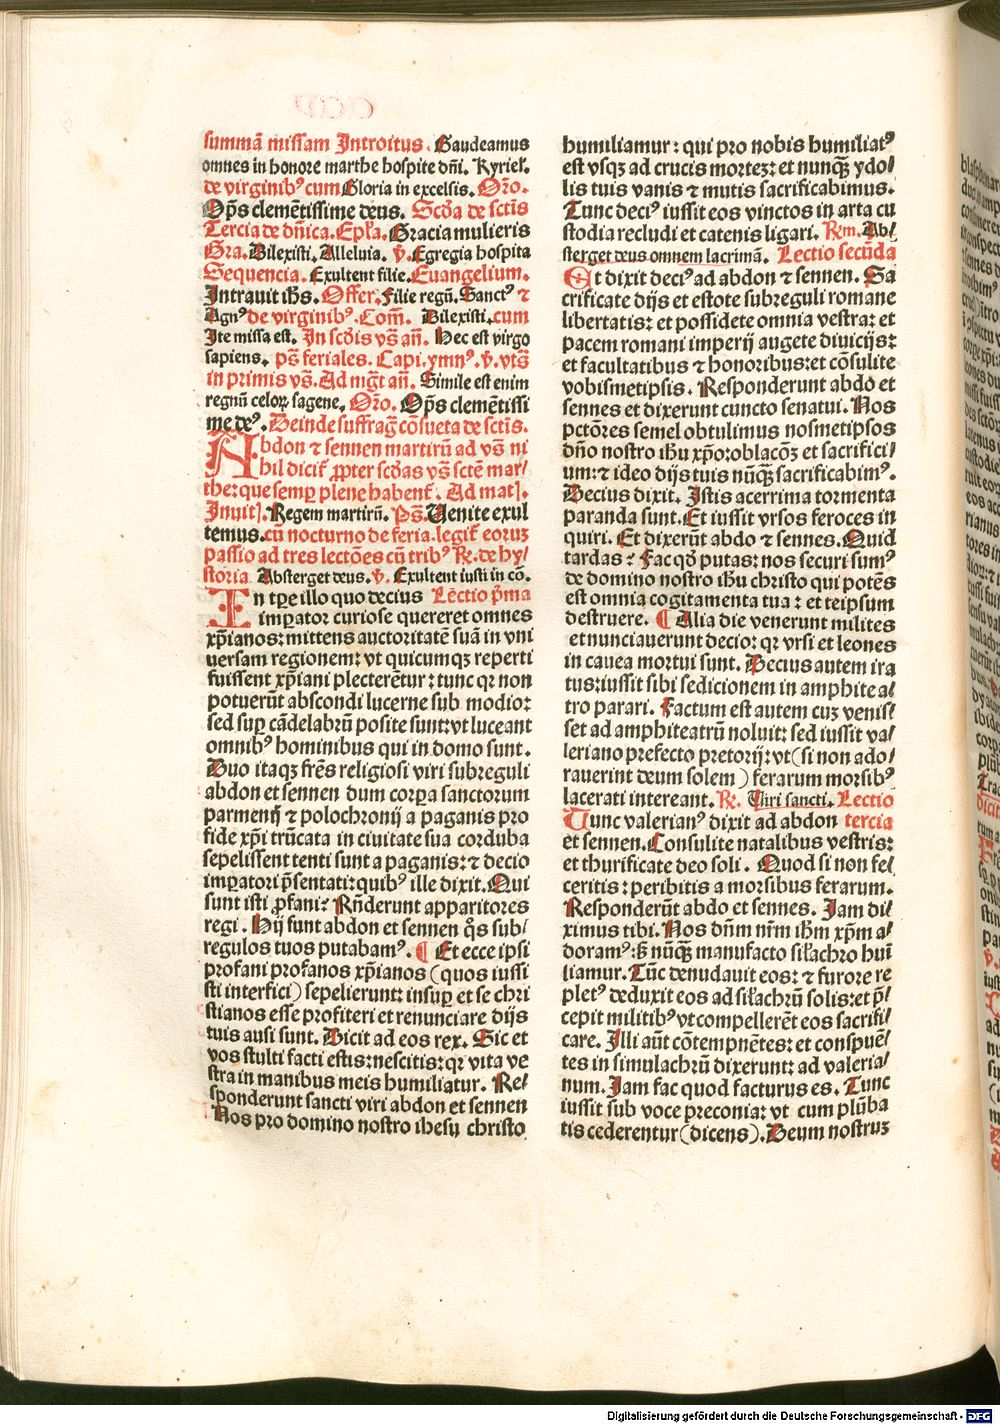 summã missam Introitus. Gaudeamus
omnes in honore marthe hospite dñi. Kyriel̃.
de virginibꝰ cum Gloria in excelsis. Oro.
Op̃s clemẽtissime deus. Scd̃a de sctĩs
Tercia de dñica. Ep̃la. Gracia mulieris
Gra. Dilexisti. Alleluia. ꝟ. Egregia hospita
Sequencia. Exultent filie. Euangelium.
Intrauit ihs̃. Offer. Filie regũ. Sanctꝰ ⁊
Agnꝰ de virginibꝰ. Com̃. Dilexisti. cum
Ite missa est. In scd̃is vs̃ añ. Hec est virgo
sapiens. ps̃ feriales. Capi. ymnꝰ. ꝟ. vts̃
in primis vs̃. Ad mg̃t añ. Simile est enim
regnũ celoꝝ sagene. Oro. Op̃s clemẽtissi
me deꝰ. Deinde suffrag̃ cõsueta de sctĩs.
Abdon ⁊ sennen martirũ ad vs̃ ni
hil dicit̃ ꝓpter scd̃as vs̃ sctẽ mar/
the: que semp̲ plene habent̃. Ad mat].
Inuit]. Regem martirũ. Ps̃. Uenite exul
temus. cũ nocturno de feria. legit̃ eoruꝫ
passio ad tres lectões cũ tribꝰ R̃. de hy/
storia. Absterget deus. ꝟ. Exultent iusti in cõ.
In tp̃e illo quo decius Lectio p̃ma
imp̲ator curiose quereret omnes
xp̃ianos: mittens auctoritatẽ suã in vni
uersam regionem: vt quicumqꝫ reperti
fuissent xp̃iani plecterẽtur: tunc qꝛ non
potuerũt abscondi lucerne sub modio:
sed sup̲ cãdelabrũ posite sunt: vt luceant
omnibꝰ hominibus qui in domo sunt.
Duo itaqꝫ frẽs religiosi viri subreguli
abdon et sennen dum corp̲a sanctorum
parmenij ⁊ polochronij a paganis pro
fide xp̃i trũcata in ciuitate sua corduba
sepelissent tenti sunt a paganis: ⁊ decio
imp̲atori p̃sentati: quibꝰ ille dixit. Qui
sunt isti ꝓfani? Rñderunt apparitores
regi. Hij sunt abdon et sennen q̃s sub/
regulos tuos putabamꝰ. ¶ Et ecce ipsi
profani profanos xp̃ianos (quos iussi
sti interfici) sepelierunt: insup̲ et se chri
stianos esse profiteri et renunciare dijs
tuis ausi sunt. Dicit ad eos rex. Sic et
vos stulti facti estis: nescitis: qꝛ vita ve
stra in manibus meis humiliatur. Re/
sponderunt sancti viri abdon et sennen
Nos pro domino nostro ihesu christo
humiliamur: qui pro nobis humiliatꝰ
est vsqꝫ ad crucis morteꝫ: et nunqꝫ̃ ydo/
lis tuis vanis ⁊ mutis sacrificabimus.
Tunc deciꝰ iussit eos vinctos in arta cu
stodia recludi et catenis ligari. Rm̃. Ab/
sterget deus omnem lacrimã. Lectio secũda
Et dixit deciꝰ ad abdon ⁊ sennen. Sa
crificate dijs et estote subreguli romane
libertatis: et possidete omnia vestra: et
pacem romani imperij augete diuicijs:
et facultatibus ⁊ honoribus: et cõsulite
vobismetipsis. Responderunt abdo et
sennes et dixerunt cuncto senatui. Nos
pctõres semel obtulimus nosmetipsos
dño nostro ihu xp̃o: oblacõꝫ et sacrifici/
um: ⁊ ideo dijs tuis nũqꝫ̃ sacrificabimꝰ.
Decius dixit. Istis acerrima tormenta
paranda sunt. Et iussit vrsos feroces in
quiri. Et dixerũt abdo ⁊ sennes. Quid
tardas? Fac qd̃ putas: nos securi sumꝰ
de domino nostro ihu christo qui potẽs
est omnia cogitamenta tua: et teipsum
destruere. ¶ Alia die venerunt milites
et nunciauerunt decio: qꝛ vrsi et leones
in cauea mortui sunt. Decius autem ira
tus: iussit sibi sedicionem in amphitea/
tro parari. Factum est autem cuꝫ venis/
set ad amphiteatrũ noluit: sed iussit va/
leriano prefecto pretorij: vt (si non ado/
rauerint deum solem) ferarum morsibꝰ
lacerati intereant. R̃. Uiri sancti. Lectio
Tunc valerianꝰ dixit ad abdon tercia
et sennen. Consulite natalibus vestris:
et thurificate deo soli. Quod si non fe/
ceritis: peribitis a morsibus ferarum.
Responderũt abdo et sennes. Jam di/
ximus tibi. Nos dñm nrm̃ ihm̃ xp̃m a/
doramꝰ: ⁊ nũqꝫ̃ manufacto sil̃achro huĩ
liamur. Tũc denudauit eos: ⁊ furore re
pletꝰ deduxit eos ad sil̃achrũ solis: et p̃/
cepit militibꝰ vt compellerẽt eos sacrifi/
care. Illi aũt cõtempnẽtes: et conspuẽ/
tes in simulachrũ dixerunt: ad valeria/
num. Jam fac quod facturus es. Tunc
iussit sub voce preconia: vt cum plũba
tis cederentur (dicens). Deum nostruꝫ
Digitalisierung gefördert durch die Deutsche Forschungsgemeinschaft - DFG